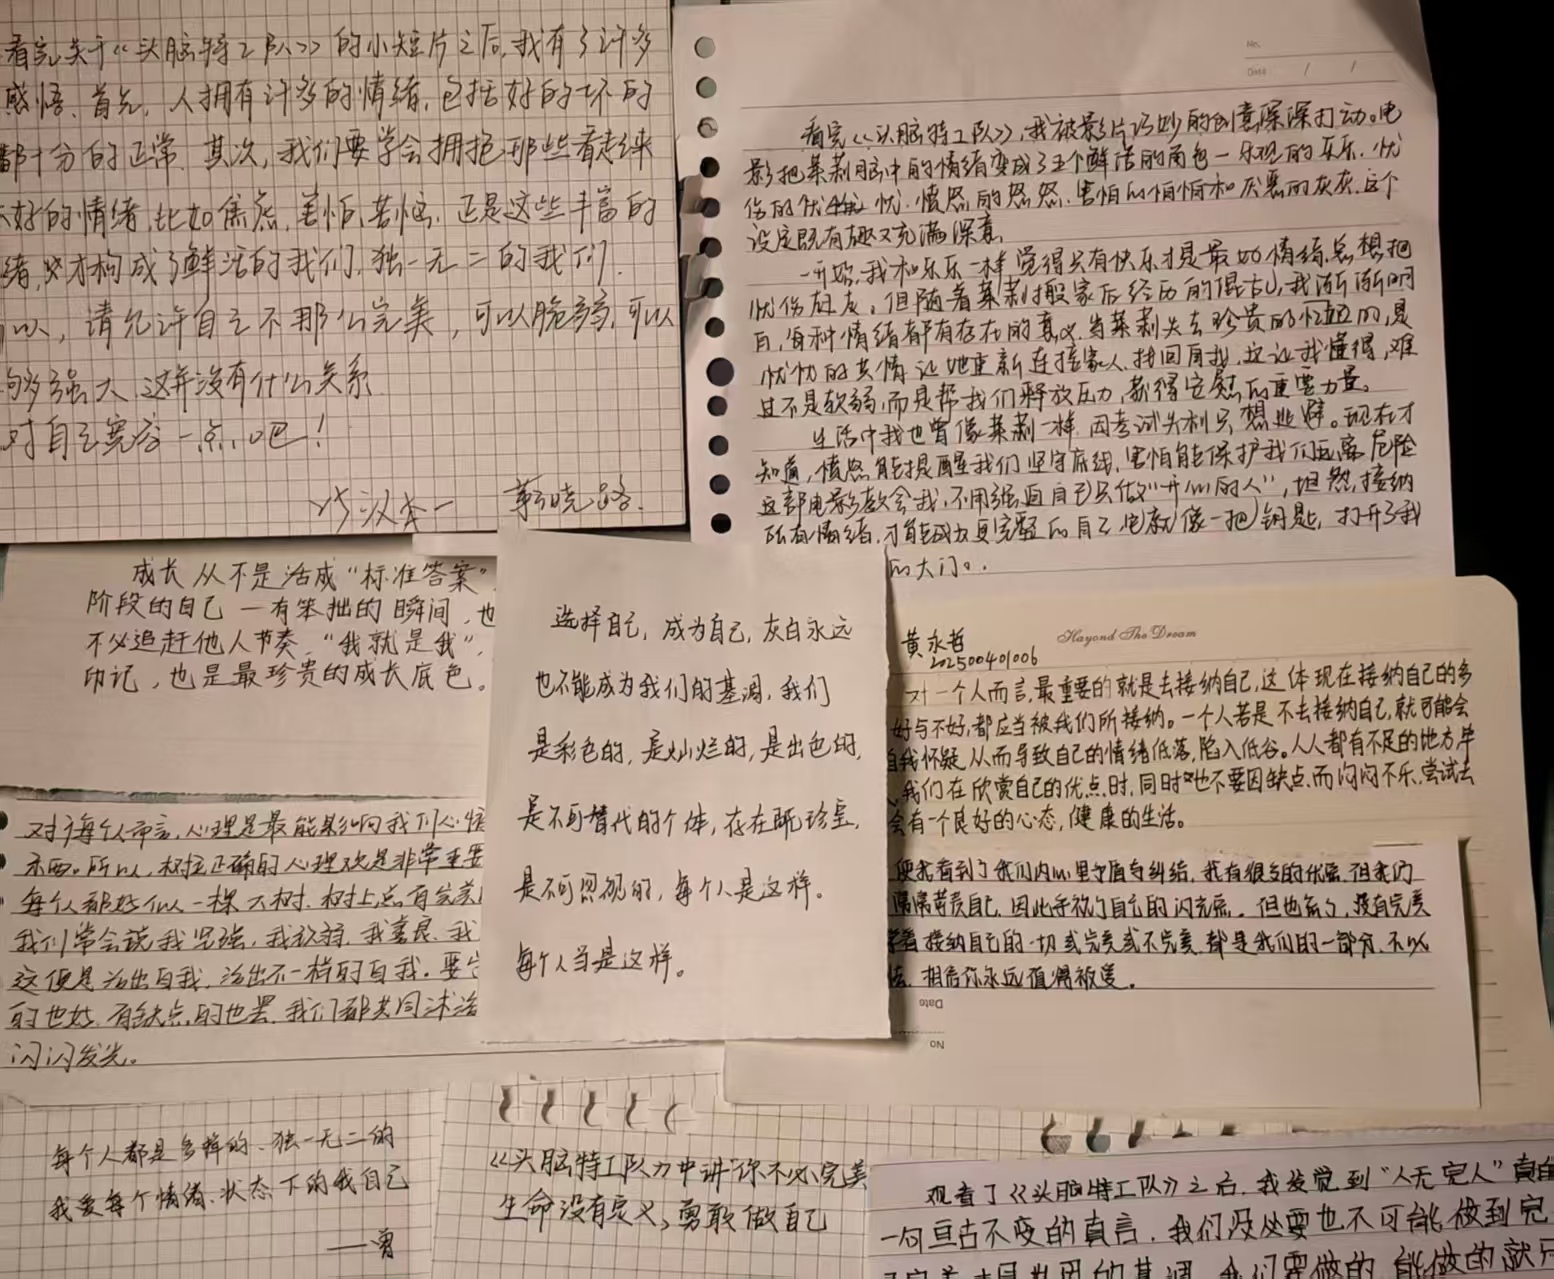 看完关于《头脑特工队》的小短片之后,我有了许多
感悟、首先,人拥有许多的情绪,包括好的坏的
都十分的正常.其次,我们要学会拥抱那些看起来
不好的情绪,比如焦虑,害怕,苦恼.正是这些丰富的
绪,才构成了鲜活的我们,独一无二的我们.
以,请允许自己不那么完美,可以脆弱,可以
够强大,这并没有什么关系
对自己宽容一点吧!
No.
Date / /
看完《头脑特工队》,我被影片巧妙的创意深深打动。电
影把莱莉脑中的情绪变成了五个鲜活的角色—乐观的乐乐、忧
伤的忧忧、愤怒的怒怒、害怕的怕怕和厌恶的灰灰.这个
设定既有趣又充满深意,
一开始,我和乐乐一样觉得只有快乐才是最好情绪.总想把
忧伤放弃。但随着莱莉搬家后经历的混乱,我渐渐明
白,每种情绪都有存在的意义.当莱莉失去珍贵的记忆时,是
忧忧的共情让她重新连接家人,找回自我.这让我懂得,难
过不是软弱,而是帮我们释放压力,获得安慰的重要力量。
生活中我也曾像莱莉一样,因考试失利只想逃避。现在才
知道,愤怒能提醒我们坚守底线,害怕能保护我们远离危险
这部电影教会我,不用强迫自己只做“开心的人”,坦然接纳
所有情绪,才能成为更完整的自己.它就像一把钥匙,打开了我
的大门。.
成长从不是活成“标准答案”
阶段的自己—有笨拙的瞬间,也
不必追赶他人节奏,“我就是我”,
印记,也是最珍贵的成长底色。
选择自己,成为自己,灰白永远
也不能成为我们的基调,我们
是彩色的,是灿烂的,是出色的,
是不可替代的个体,存在既珍宝,
是不可忽视的,每个人是这样。
每个人当是这样。
黄永哲
202500401006
Hayond The Dream
对一个人而言,最重要的就是去接纳自己,这体现在接纳自己的多
好与不好,都应当被我们所接纳。一个人若是不去接纳自己,就可能会
自我怀疑,从而导致自己的情绪低落,陷入低谷。人人都有不足的地方,毕
我们在欣赏自己的优点时,同时也不要因缺点而闷闷不乐,尝试去
会有一个良好的心态,健康的生活。
便我看到了我们内心里矛盾与纠结,我有很多的优点.但我们
常常苛责自己,因此忽视了自己的闪光点。但也有的,没有完美
接纳自己的一切或完美或不完美,都是我们的一部分,不必
相信你永远值得被爱。
Date
No
对于每个人而言,心理是最能影响我们心情
东西。所以,树立正确的心理观是非常重要
每个人都好似一棵大树,树上总有
我们常会说我坚强,我软弱,我善良,我
这便是活出自我,活出不一样的自我.要
的也好,有缺点的也罢,我们都共同沐浴
闪闪发光。
每个人都是多样的、独一无二的
我爱每个情绪、状态下的我自己
——曾
《头脑特工队》中讲“你不必完美
生命没有定义,勇敢做自己
观看了《头脑特工队》之后,我发觉到“人无完人”真的
一句亘古不变的真言,我们没必要也不可能做到完
的基调,我们要做的,能做的就只